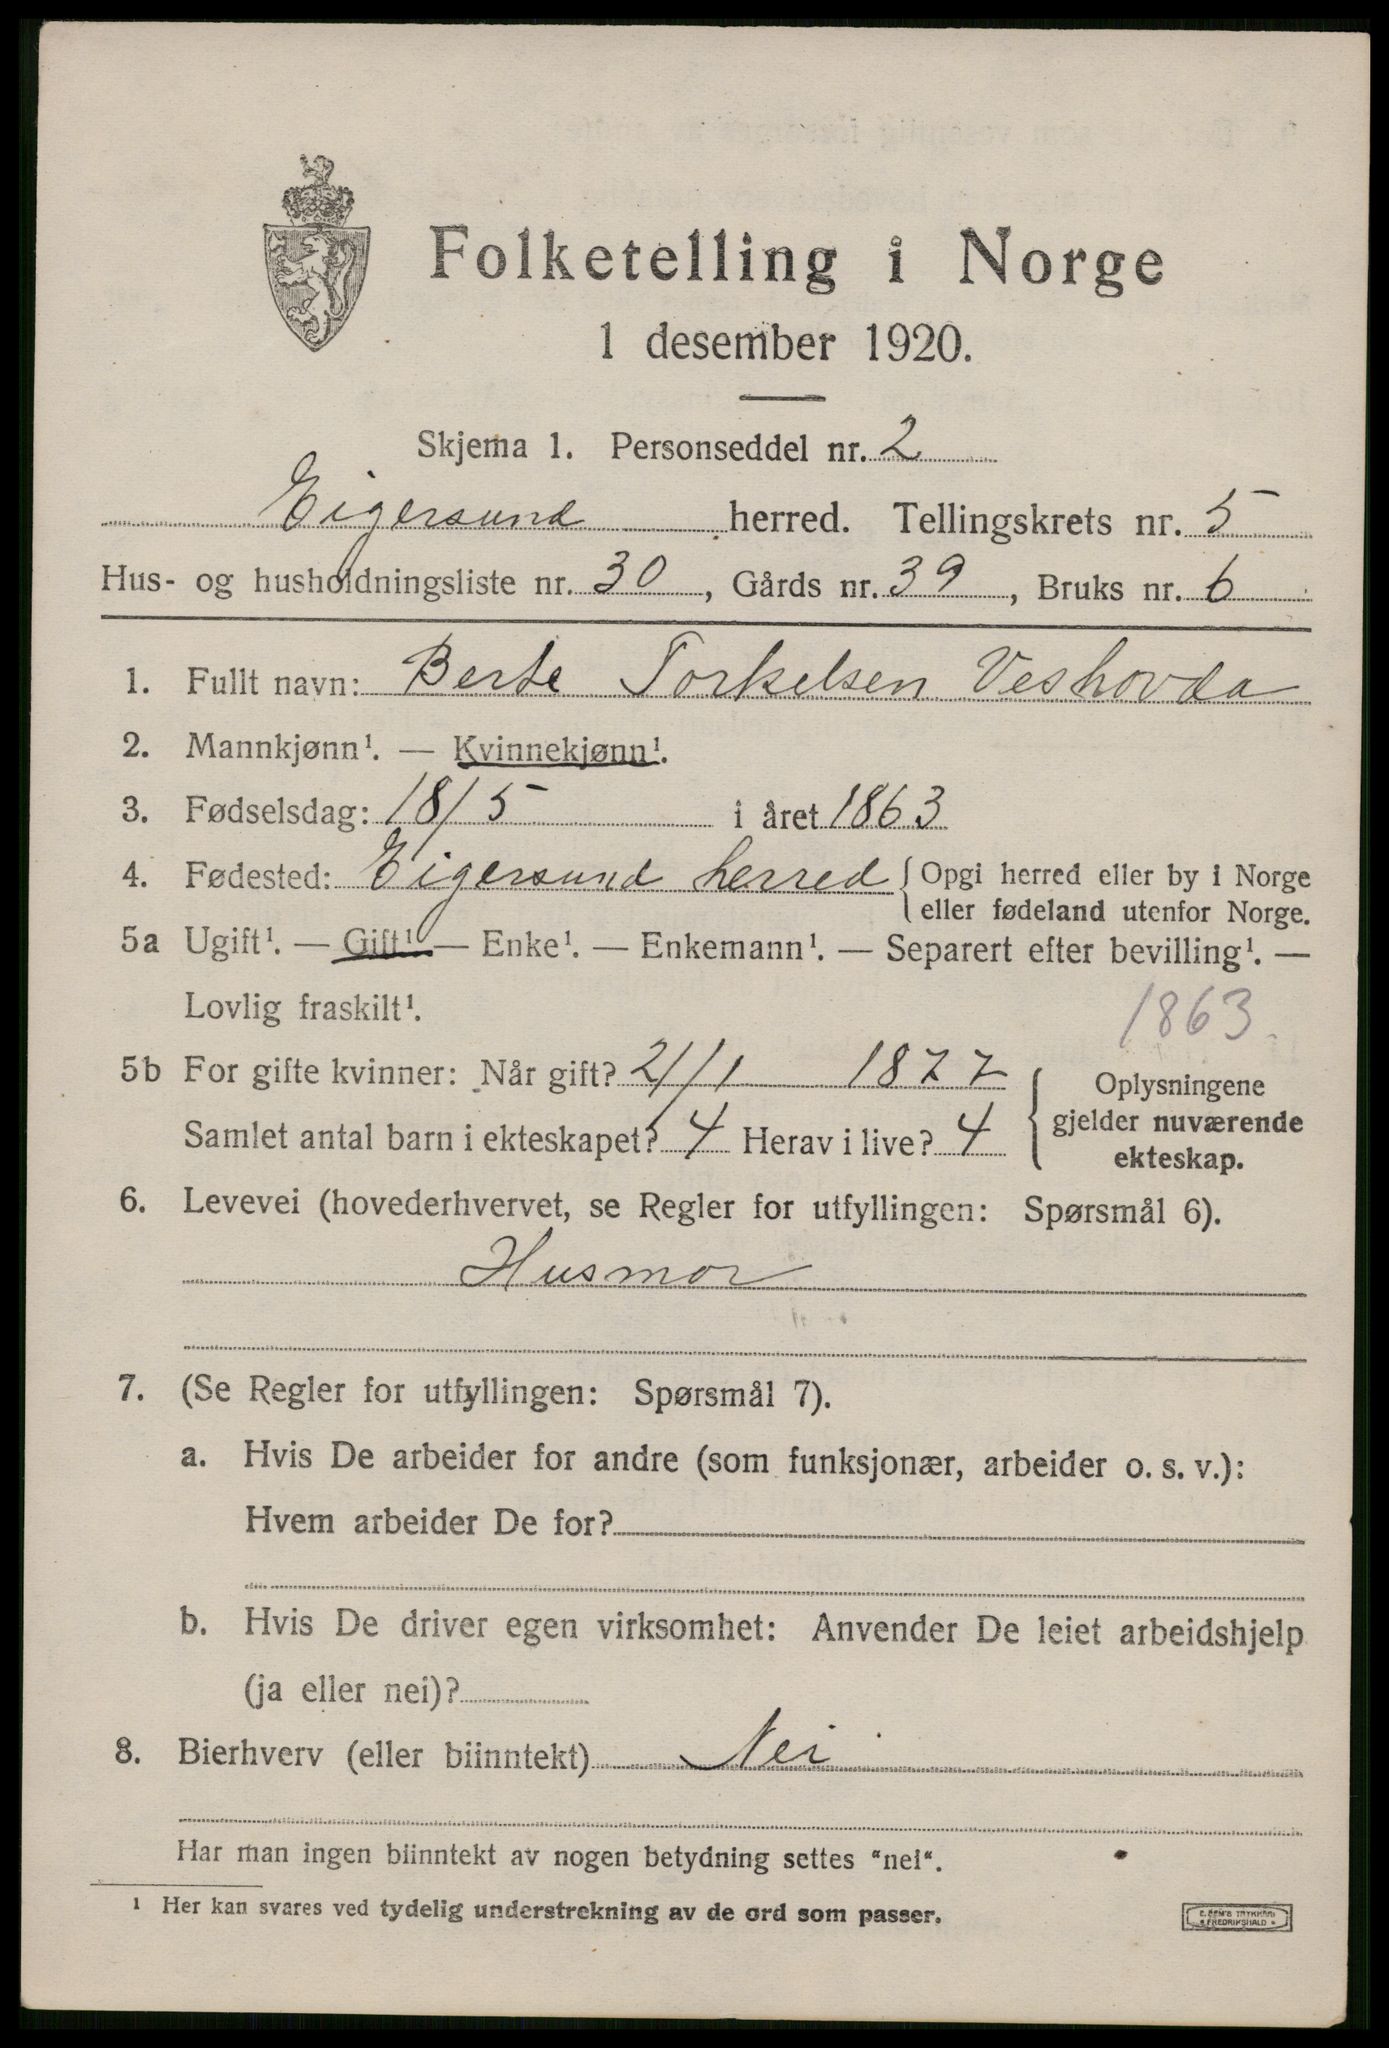 Folketelling i Norge
1 desember 1920.
Skjema 1. Personseddel nr. 2
Eigersund herred. Tellingskrets nr. 5
Hus- og husholdningsliste nr. 30, Gårds nr. 39, Bruks nr. 6
1. Fullt navn: Berte Torkelsen Veshovda
2. Mannkjønn¹. — Kvinnekjønn¹.
3. Fødselsdag: 18/5 i året 1863
4. Fødested: Eigersund herred { Opgi herred eller by i Norge
eller fødeland utenfor Norge.
5a Ugift¹. — Gift¹ — Enke¹. — Enkemann¹. — Separert efter bevilling¹. —
Lovlig fraskilt¹.
1863.
5b For gifte kvinner: Når gift? 21/1 1877 { Oplysningene
gjelder nuværende
ekteskap.
Samlet antal barn i ekteskapet? 4 Herav i live? 4
6. Levevei (hovederhvervet, se Regler for utfyllingen: Spørsmål 6).
Husmor
7. (Se Regler for utfyllingen: Spørsmål 7).
a. Hvis De arbeider for andre (som funksjonær, arbeider o. s. v.):
Hvem arbeider De for?
b. Hvis De driver egen virksomhet: Anvender De leiet arbeidshjelp
(ja eller nei)?
8. Bierhverv (eller biinntekt) Nei
Har man ingen biinntekt av nogen betydning settes "nei".
¹ Her kan svares ved tydelig understrekning av de ord som passer.
E. SEM'S TRYKKERI
FREDRIKSHALD